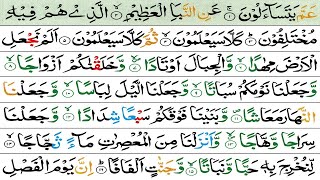 عَمَّ يَتَسَآءَلُوۡنَ‌ۚ ۝١ عَنِ النَّبَاِ الۡعَظِيۡمِۙ ۝٢ الَّذِىۡ هُمۡ فِيۡهِ
مُخۡتَلِفُوۡنَؕ ۝٣ كَلَّا سَيَعۡلَمُوۡنَۙ ۝٤ ثُمَّ كَلَّا سَيَعۡلَمُوۡنَ ۝٥ اَلَمۡ نَجۡعَلِ
الۡاَرۡضَ مِهٰدًا ۙ ۝٦ وَّالۡجِبَالَ اَوۡتَادًا ۙ ۝٧ وَّخَلَقۡنٰكُمۡ اَزۡوَاجًا ۙ ۝٨
وَّجَعَلۡنَا نَوۡمَكُمۡ سُبَاتًا ۙ ۝٩ وَّجَعَلۡنَا الَّيۡلَ لِبَاسًا ۙ ۝١٠ وَّجَعَلۡنَا
النَّهَارَ مَعَاشًا ۝١١ وَّبَنَيۡنَا فَوۡقَكُمۡ سَبۡعًا شِدَادًا ۙ ۝١٢ وَّجَعَلۡنَا
سِرَاجًا وَّهَّاجًا ۙ ۝١٣ وَّاَنۡزَلۡنَا مِنَ الۡمُعۡصِرٰتِ مَآءً ثَجَّاجًا ۙ ۝١٤
لِّنُخۡرِجَ بِهٖ حَبًّا وَّنَبَاتًا ۙ ۝١٥ وَّجَنّٰتٍ اَلۡفَافًا ؕ ۝١٦ اِنَّ يَوۡمَ الۡفَصۡلِ